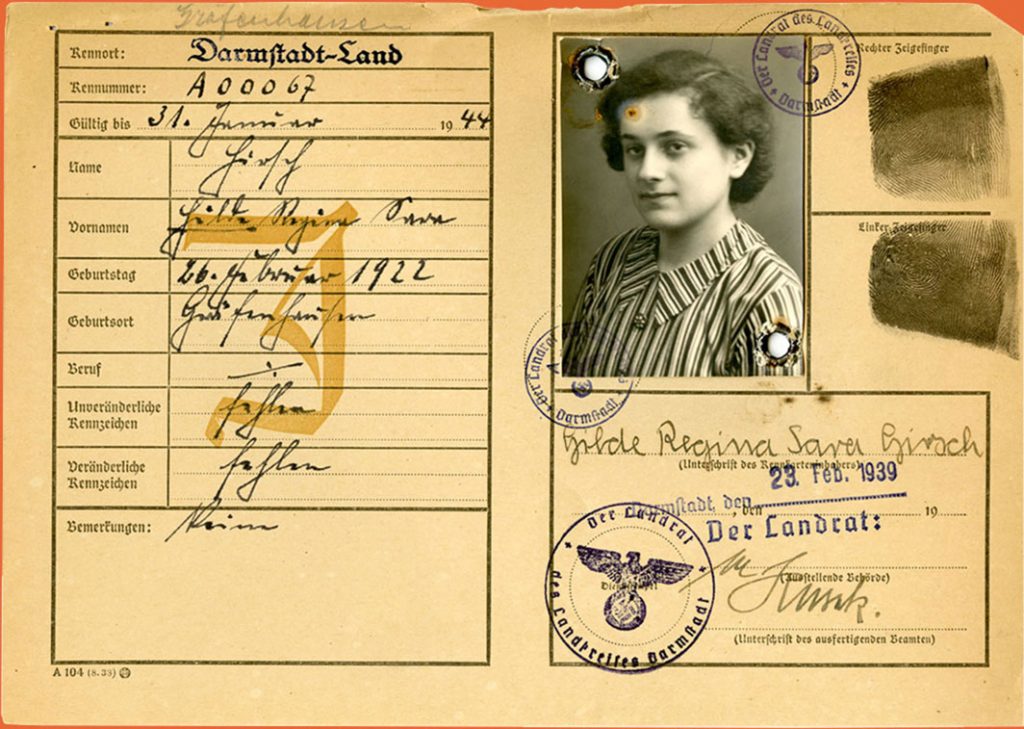 Gräfenhausen
Kennort: Darmstadt-Land
Kennummer: A 00067
Gültig bis 31. Januar 1944
Name Hirsch
Vornamen Hilde Regina Sara
Geburtstag 26. Februar 1922
Geburtsort Gräfenhausen
Beruf ./.
Unveränderliche Kennzeichen fehlen
Veränderliche Kennzeichen fehlen
Bemerkungen: Keine
J
A 104 (8.38)
Der Landrat des Landkreises Darmstadt
Rechter Zeigefinger
Linker Zeigefinger
Der Landrat Darmstadt
Hilde Regina Sara Hirsch
(Unterschrift des Kennkarteninhabers)
23. Feb. 1939
Darmstadt, den
, den 19
Der Landrat:
Der Landrat des Landkreises Darmstadt
Dienststempel
(Ausstellende Behörde)
(Unterschrift des ausfertigenden Beamten)